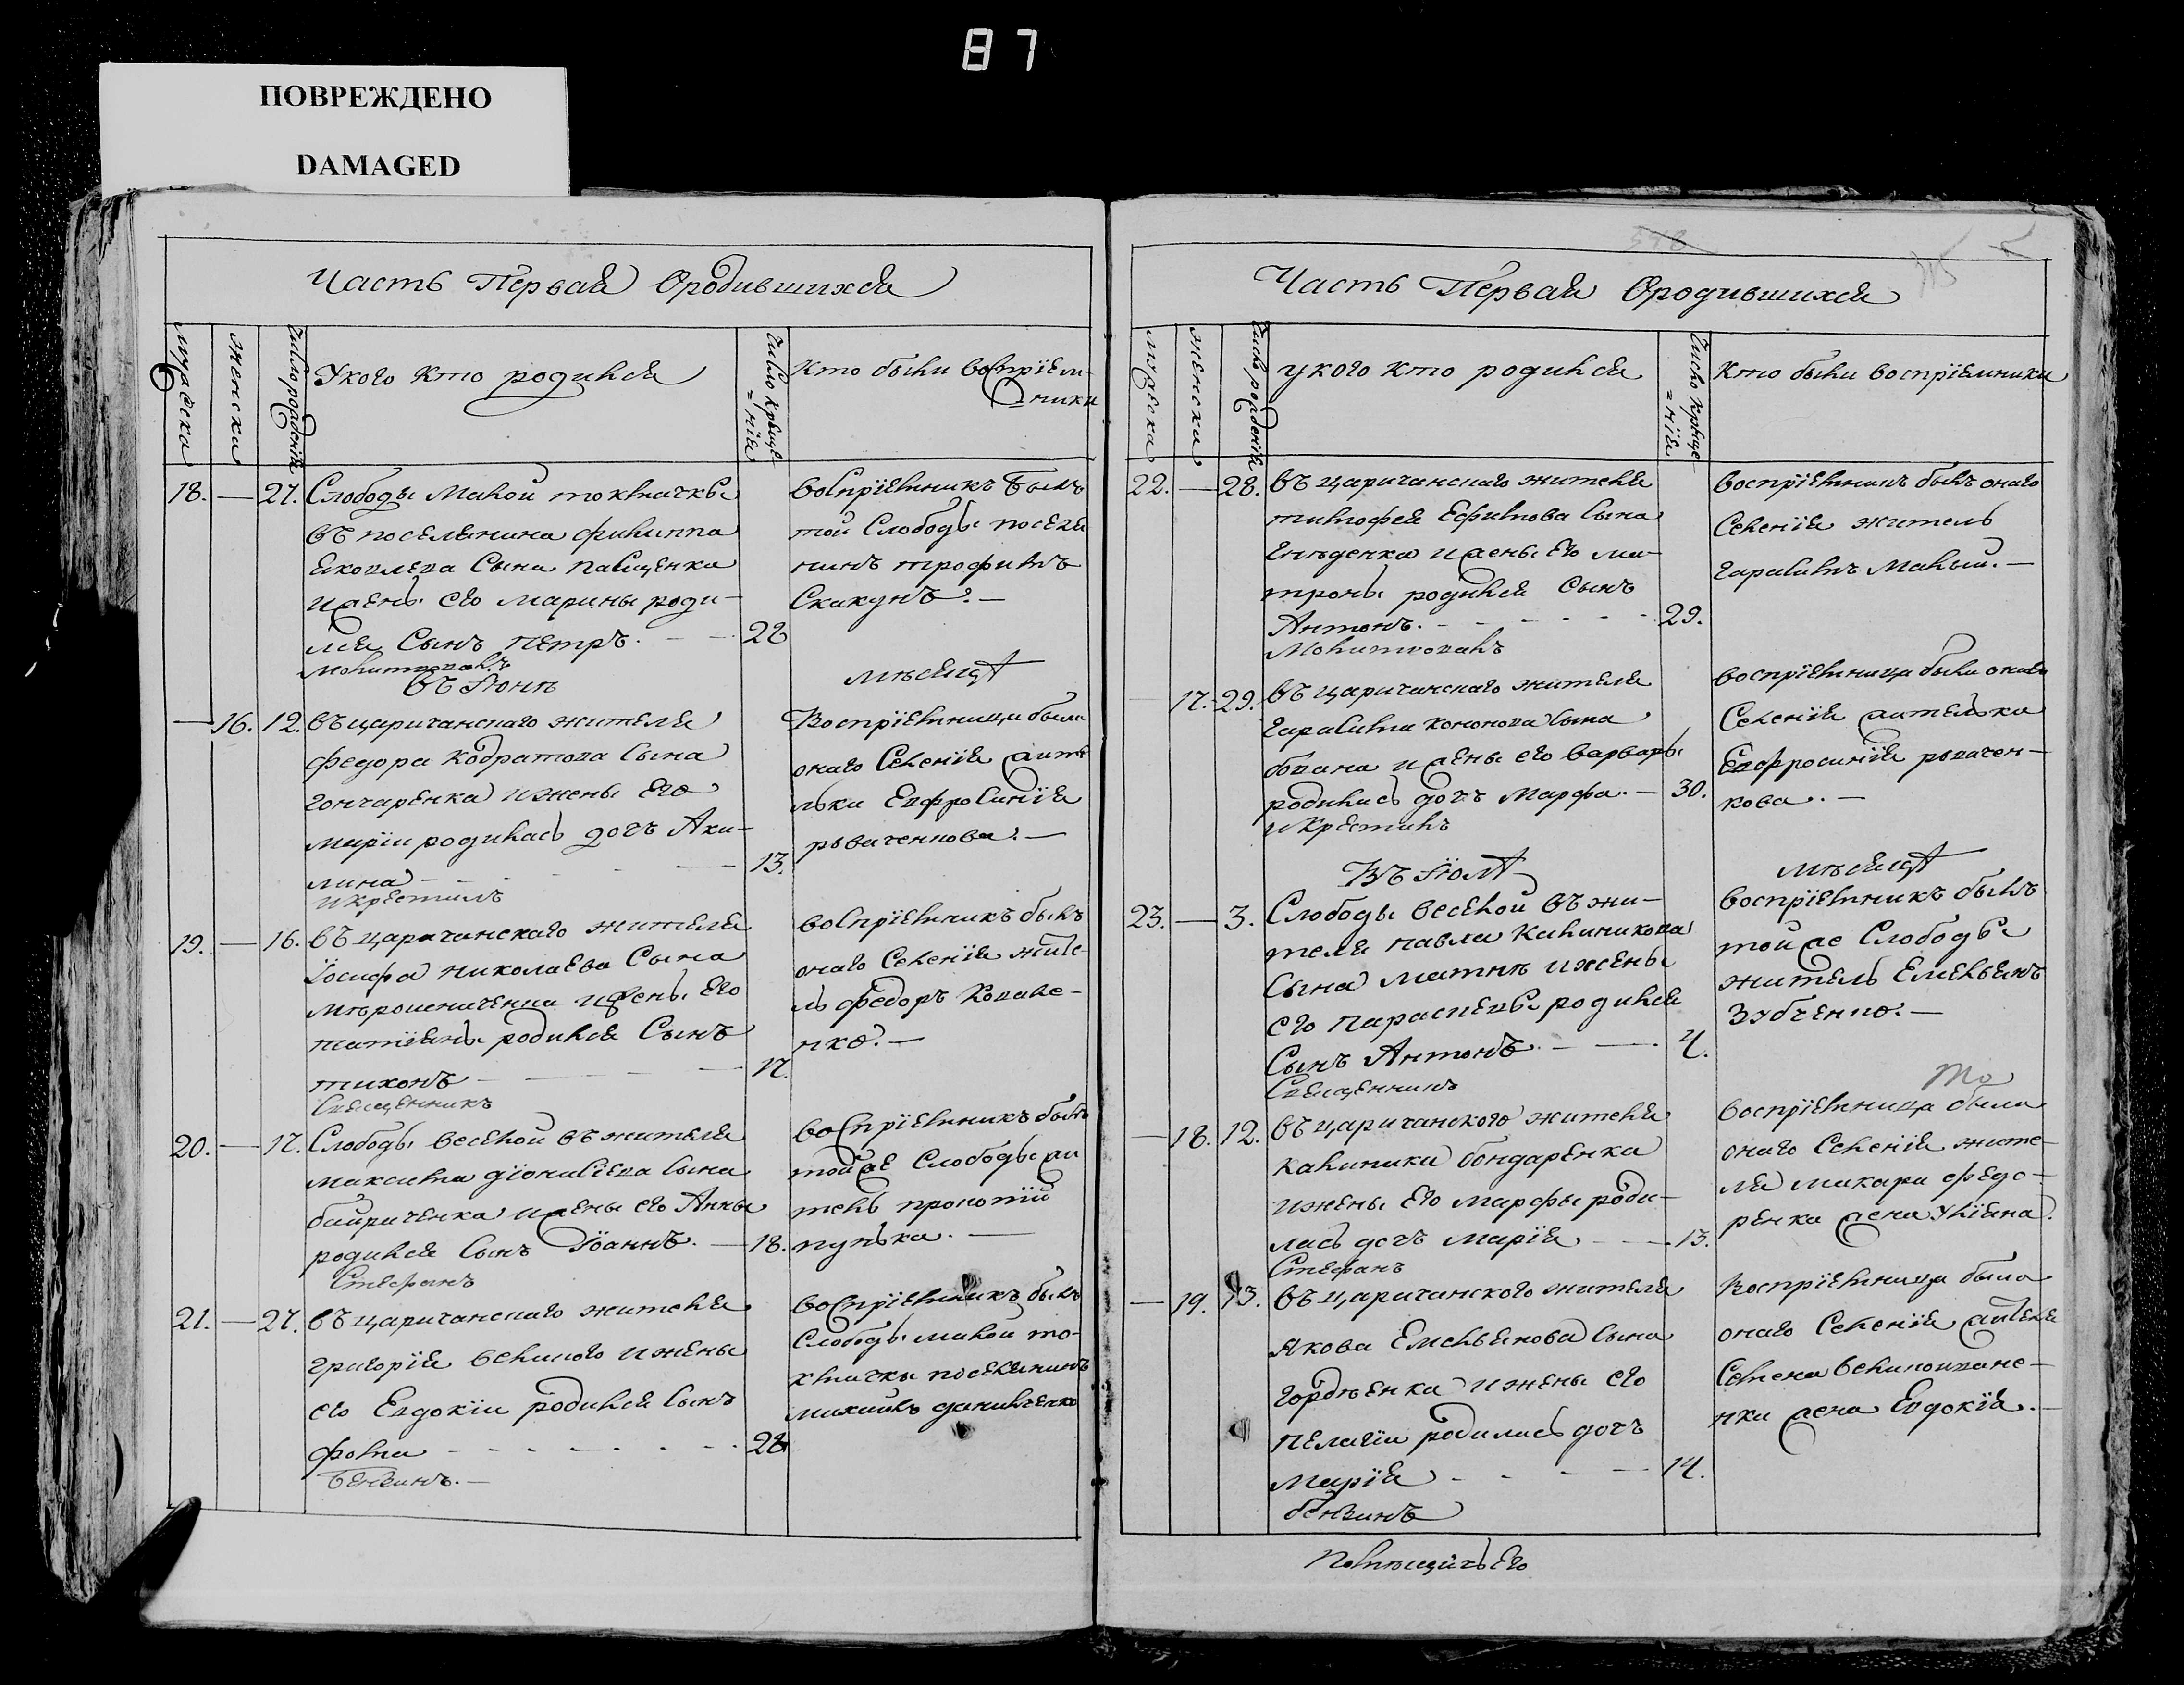 87
ПОВРЕЖДЕНО
DAMAGED
Часть Первая Ородившихся
мужеска
женска
Число рождения
Укого кто родился
Число крыще=
=ния
Кто были воспріем-
=ники
18. — 27. Слободы Малой токмачкы
въ поселянина филиппа
яковлева Сына пащенка
ижены его марины роди-
лся Сынъ Петръ. — 28
молитвовалъ
воспріемникъ Былъ
той Слободы поселя
нинъ трофимъ
Скакунъ. —
въ Іюнѣ
мѣсяцѣ
— 16. 12. въ царичанскаго жителя
федора кодратова Сына
гончаренка ижены Его
маріи родилась дочъ Аки-
лина — 13.
икрестилъ
Воспріемница была
онаго Селенія жите
лька Евфросинія
роваченкова. —
19. — 16. въ царичанскаго жителя
Іосифа николаева Сына
мѣрошниченка ижены Его
татіяны родился Сынъ
тихонъ — 17.
Священникъ
воспріемникъ былъ
онаго Селенія жите-
ль федоръ Ковале-
нко. —
20. — 17. Слободы веселой въ жителя
максима діонисіева Сына
байриченка ижены его Анны
родился Сынъ Іоаннъ. — 18.
Стефанъ
воспріемникъ былъ
тойже Слободы жи
тель прокопій
пунька. —
21. — 27. въ царичанскаго жителя
григорія великого ижены
его Евдокіи родился Сынъ
фома — 28
Бензинъ. —
воспріемникъ былъ
Слободы малой то-
кмачки поселянинъ
михаилъ данильченко
Часть Первая Ородившихся
мужеска
женска
Число рожденія
укого кто родился
Число крыще-
=нія
Кто были воспріемники
22. — 28. въ царичанскаго жителя
тимофея Ефимова Сына
гнѣденка ижены Его ма-
троны родился Сынъ
Антонъ. — 29.
Молитвовалъ
воспріемникъ былъ онаго
Селенія житель
гарасимъ Малый. —
17. 29. въ царичанскаго жителя
гарасима кононова Сына
бована ижены его варвары
родилась дочъ Марфа. — 30.
икрестилъ
воспріемница были онаго
Селенія жителька
Евфросинія ровачен-
кова. —
Въ Іюлѣ
мѣсяцѣ
23. — 3. Слободы веселой въ жи-
теля павла Калиникова
Сына матнѣ ижены
его параскевы родился
Сынъ Антонъ. — 4.
Священникъ
воспріемникъ былъ
тойже Слободы
житель Емельянъ
Зубченко. —
То
— 18. 12. въ царичанского жителя
калиника бондаренка
ижены Его марфы роди-
лась дочъ марія — 13.
Стефанъ
воспріемница была
онаго Селенія жите-
ля макара федо-
ренка жена Уліяна.
— 19. 13. въ царичанского жителя
Якова Емельянова Сына
гордѣенка ижены его
пелагіи родилась дочъ
марія — 14.
бензинъ
Воспріемница была
онаго Селенія жителя
Семена великоиване-
нка жена Евдокія. —
Помѣщикъ Его